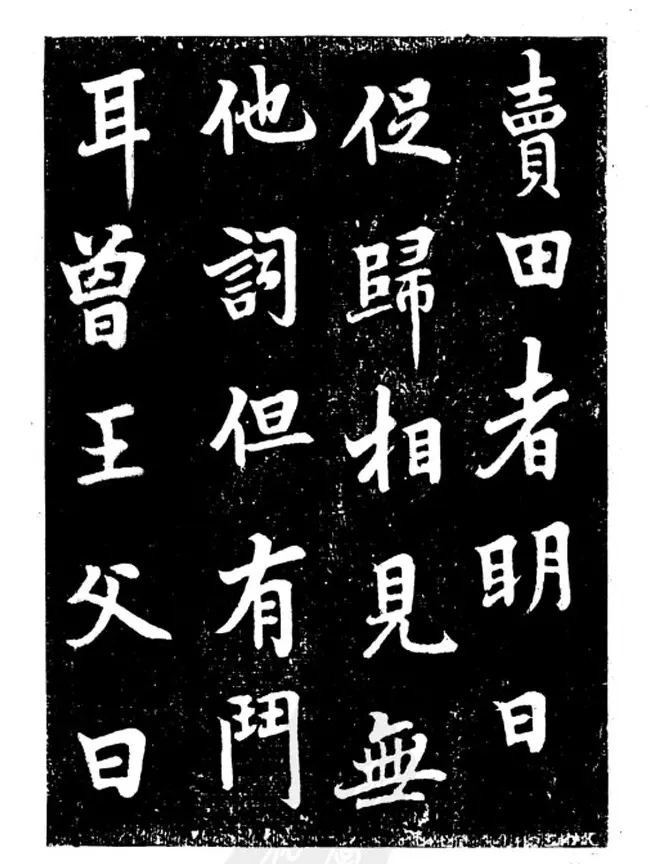 賣田者明日
促歸相見無
他詞但有鬥
耳曾王父曰